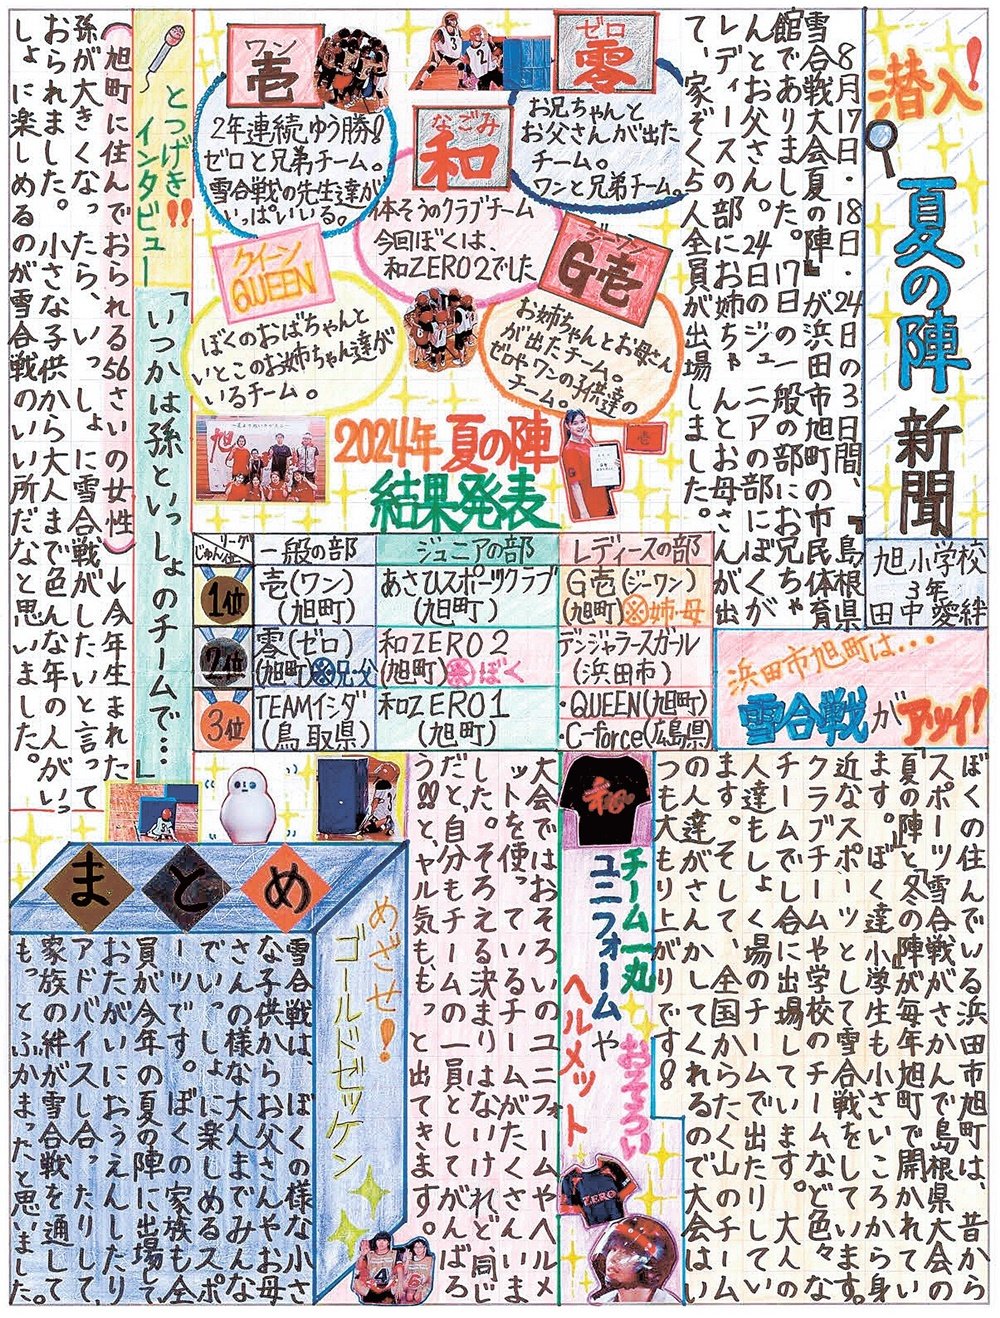 潜入!
夏の陣
新聞
旭小学校
3年
田中愛絆
8月17日・18日・24日の3日間、『島根県
雪合戦大会夏の陣』が浜田市旭町の市民体育
館でありました。17日の一般の部にお兄ちゃ
んとお父さん。24日のジュニアの部にぼくが
レディースの部にお姉ちゃんとお母さんが出
て、家ぞく5人全員が出場しました。
ゼロ
零
お兄ちゃんと
お父さんが出た
チーム。
ワンと兄弟チーム。
ワン
壱
2年連続ゆう勝!!
ゼロと兄弟チーム。
雪合戦の先生達が
いっぱいいる。
なごみ
和
体そうのクラブチーム
今回ぼくは、
和ZERO2でした
ジーワン
G壱
お姉ちゃんとお母さん
が出たチーム。
ゼロやワンの子供達の
チーム。
クイーン
QUEEN
ぼくのおばちゃんと
いとこのお姉ちゃん達が
いるチーム。
2024年 夏の陣
結果発表
リーグ
じゅん位
一般の部
ジュニアの部
レディースの部
1位
壱(ワン)
(旭町)
あさひスポーツクラブ
(旭町)
G壱(ジーワン)
(旭町)※姉・母
2位
零(ゼロ)
(旭町)※兄・父
和ZERO2
(旭町)※ぼく
デンジャラースガール
(浜田市)
3位
TEAMイシダ
(鳥取県)
和ZERO1
(旭町)
・QUEEN(旭町)
・C-force(広島県)
とつげき!!
インタビュー
「いつかは孫といっしょのチームで…」
(旭町に住んでおられる56さいの女性)↓今年生まれた
孫が大きくなったら、いっしょに雪合戦がしたいと言って
おられました。小さな子供から大人まで色んな年の人がいっ
しょに楽しめるのが雪合戦のいい所だなと思いました。
浜田市旭町は…
雪合戦がアツイ!
ぼくの住んでいる浜田市旭町は、昔から
スポーツ雪合戦がさかんで島根県大会の
『夏の陣』と『冬の陣』が毎年旭町で開かれてい
ます。ぼく達小学生も小さいころから身
近なスポーツとして雪合戦をしています。
クラブチームや学校のチームなど色々な
チームでし合に出場しています。大人の
人達もしょく場のチームで出たりしてい
ます。そして、全国からたく山のチーム
の人達がさんかしてくれるので大会はい
つも大もり上がりです!!
チーム一丸
おそろい
ユニフォームや
ヘルメット
ZERO
大会ではおそろいのユニフォームやヘルメ
ットを使っているチームがたくさんいま
した。そろえる決まりはないけれど、同じ
だと、自分もチームの一員としてがんばろ
う!!と、ヤル気ももっと出てきます。
めざせ!
ゴールドゼッケン
まとめ
雪合戦は、ぼくの様な小さ
な子供からお父さんやお母
さんの様な大人までみんな
でいっしょに楽しめるスポ
ーツです。ぼくの家族も全
員が今年の夏の陣に出場して、
おたがいにおうえんしたり
アドバイスし合ったりして、
家族の絆が雪合戦を通して
もっとふかまったと思いました。